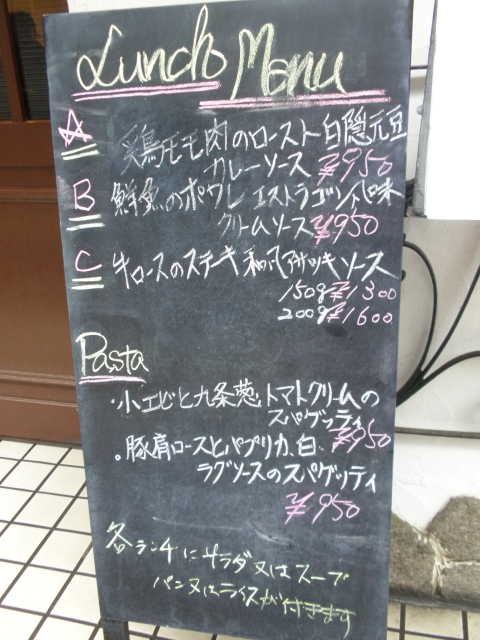 Lunch Menu
A 鶏モモ肉のロースト白隠元豆
カレーソース ¥950
B 鮮魚のポワレ エストラゴン風味
クリームソース ¥950
C 牛ロースのステーキ 和風アサツキソース
150g ¥1300
200g ¥1600
Pasta
・小エビと九条葱、トマトクリームの
スパゲッティ ¥950
。豚肩ロースとパプリカ、白
ラグソースのスパゲッティ
¥950
各ランチにサラダ又はスープ
パン又はライスが付きます